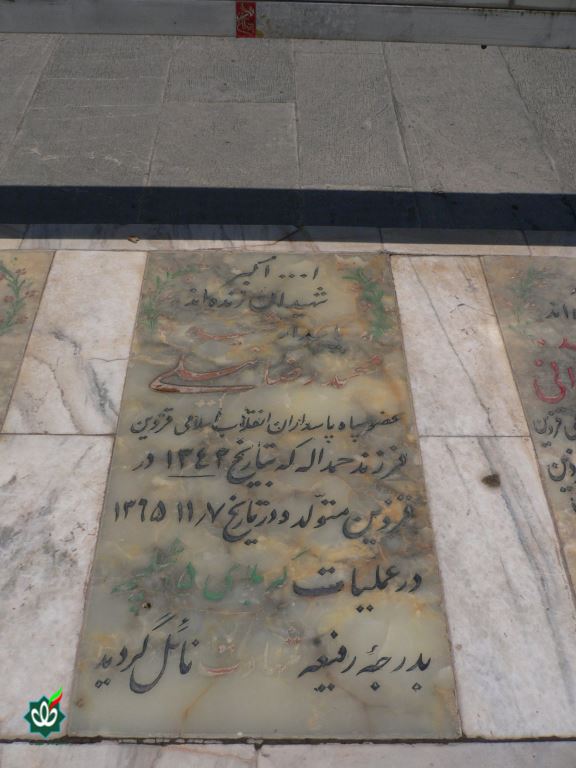 ا... اکبر
شهیدان زنده‌اند
پاسدار شهید
رضا
عضو سپاه پاسداران انقلاب اسلامی قزوین
فرزند حمداله که بتاریخ ۱۳۴۲ در
قزوین متولد و در تاریخ ۱۱٫۷ ۱۳۶۵
در عملیات کربلای ۵ شلمچه
بدرجهٔ رفیعه شهادت نائل گردید